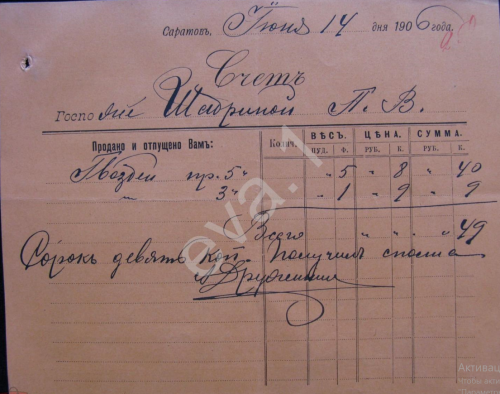 Саратовъ, Іюня 14 дня 1906 года.
Счетъ
Госпожѣ Шабриной П. В.
Продано и отпущено Вамъ: Колич. ВѢСЪ. ЦѢНА. СУММА.
ПУД. Ф. РУБ. К. РУБ. К.
Гвоздей пр. 5" " 5 " 8 " 40
" 3" " 1 " 9 " 9
Всего " " " 49
Сорокъ девять коп. Получилъ сполна
eva.1
Активац